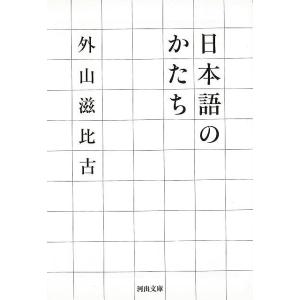 日本語の
かたち
外山滋比古
河出文庫